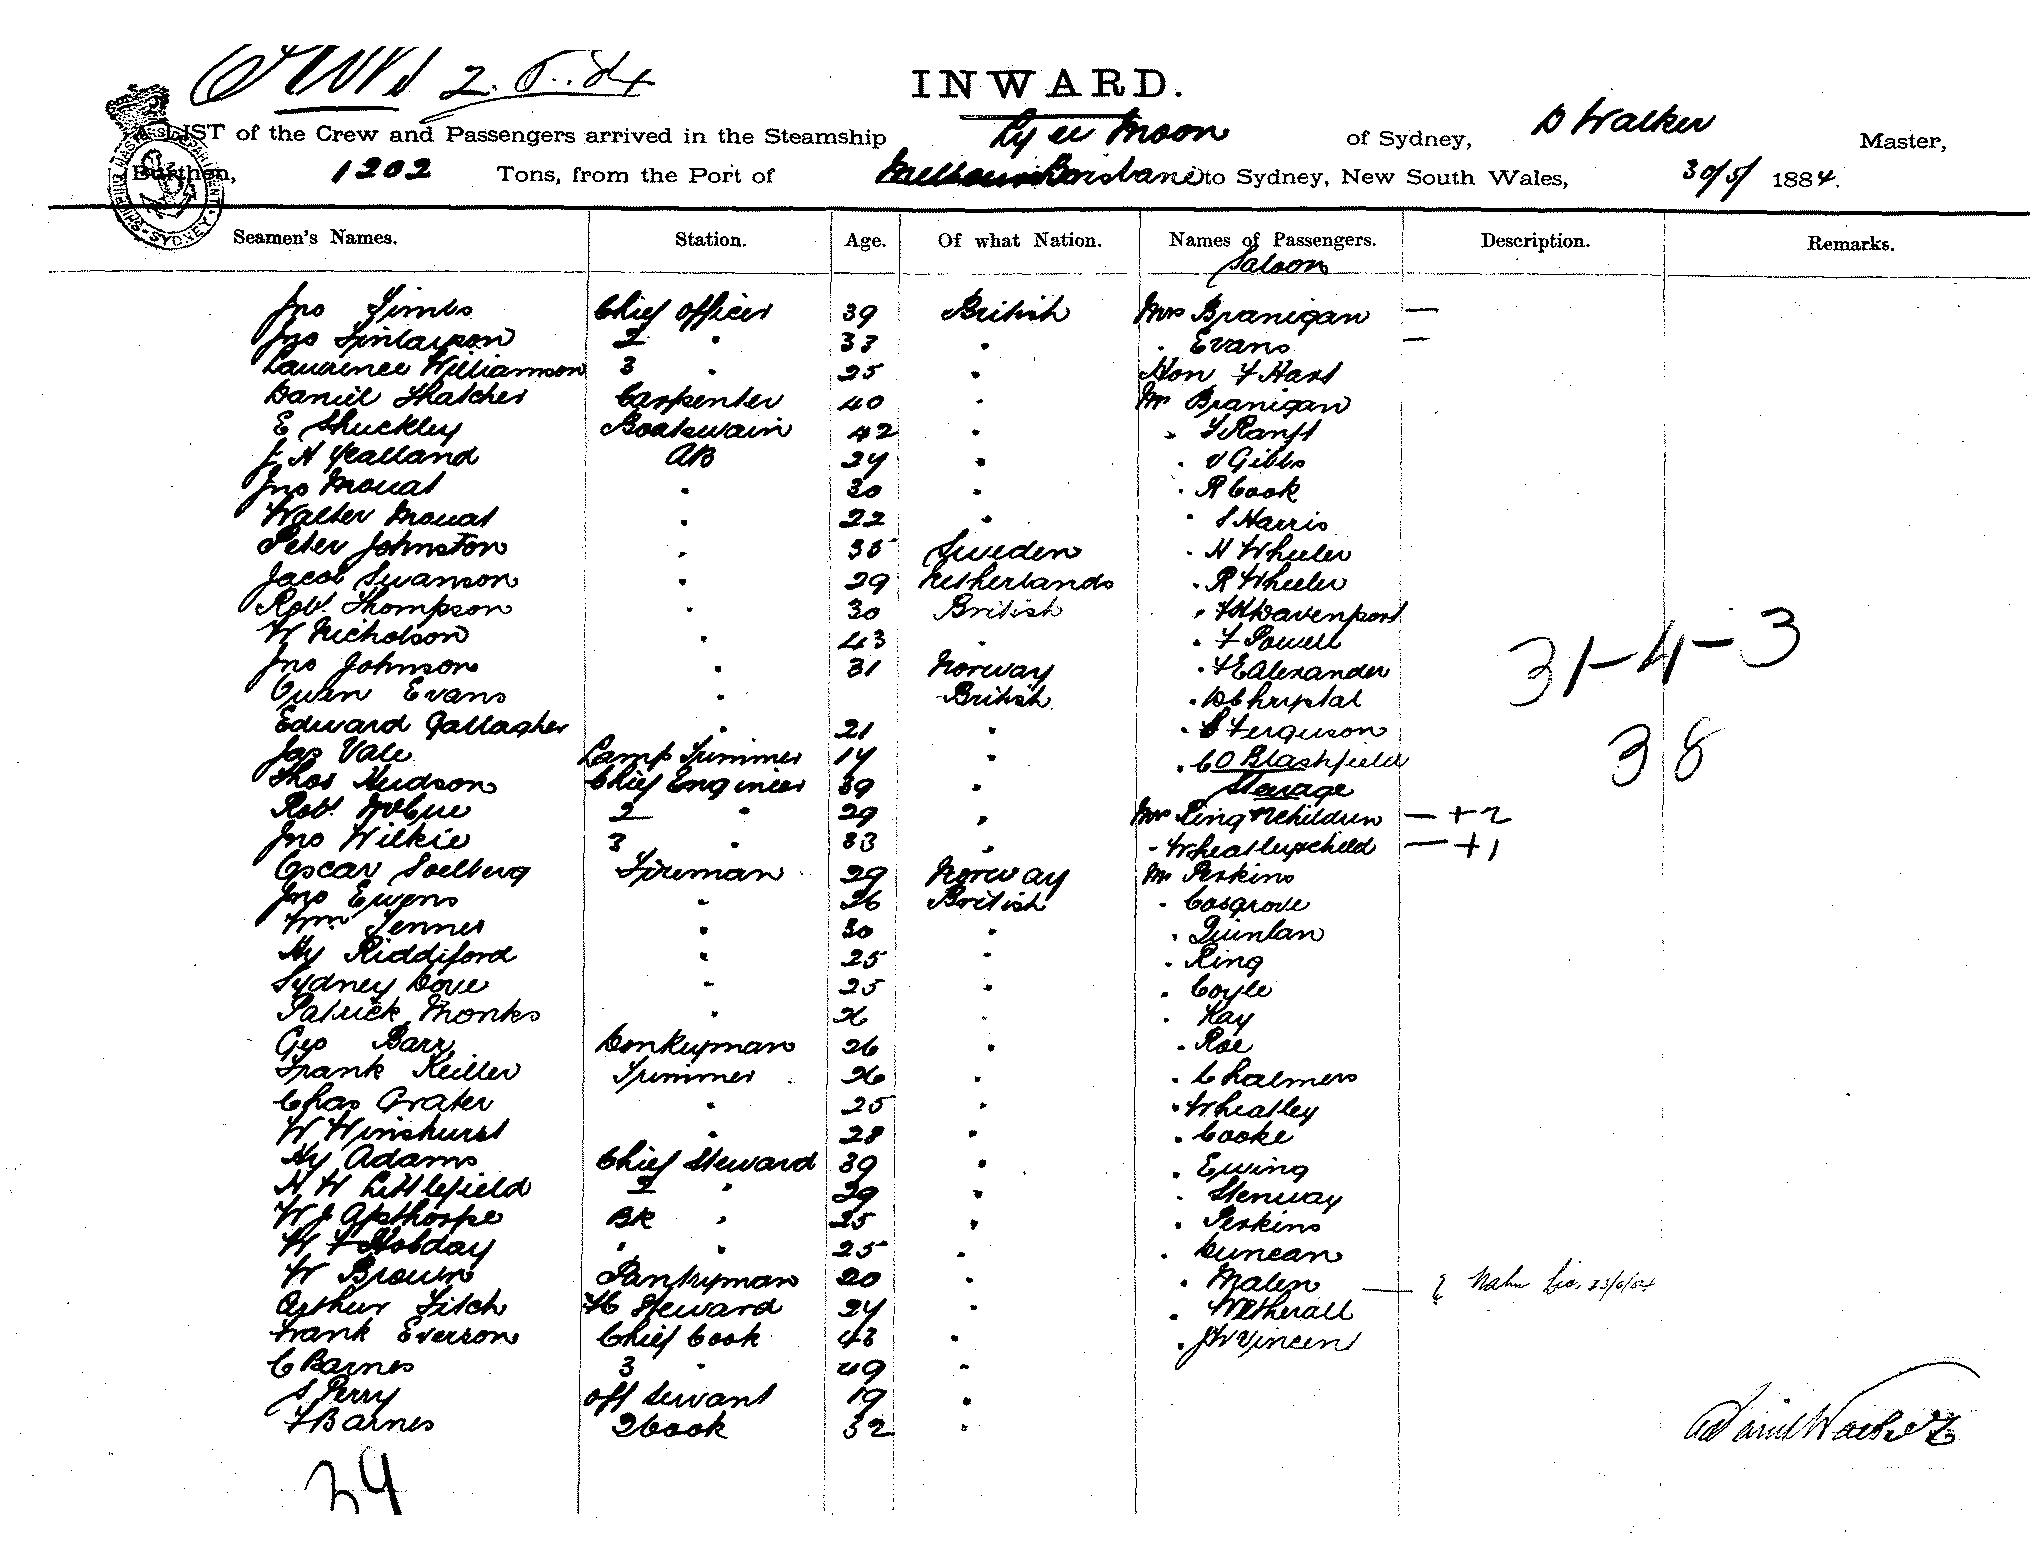 2.6.84
INWARD.
A LIST of the Crew and Passengers arrived in the Steamship Ly ee Moon of Sydney, D Walker Master,
Burthen, 1202 Tons, from the Port of Brisbane to Sydney, New South Wales, 30/5/ 1884.
Seamen's Names. Station. Age. Of what Nation. Names of Passengers. Description. Remarks.
Saloon
Jno Timbs Chief Officer 39 British Mrs Branigan —
Jno Finlayson 2 " 33 " " Evans —
Laurence Williamson 3 " 25 " Hon F Hart
Daniel Thatcher Carpenter 40 " Mr Branigan
E Shuckley Boatswain 42 " " Ranft
J H Yealland AB 24 " " V Gibbs
Jno Mouat " 30 " " R Cook
Walter Mouat " 22 " " S Harris
Peter Johnston " 35 Sweden " H Wheeler
Jacob Swanson " 29 Netherlands " R Wheeler
Robt. Thompson " 30 British " Davenport
W Nicholson " 43 " " F Powell
Jno Johnson " 31 Norway " F E Alexander
Owen Evans " British " D Chrystal
31-4-3
Edward Gallagher " 21 " " Ferguson
Jas Vale Lamp Trimmer 17 " " C O Blashfield
38
Thos Hudson Chief Engineer 39 " Steerage
Robt. McCue 2 " 29 " Mrs Ring & 2 children — +2
Jno Wilkie 3 " 33 " " Wheatley & child — +1
Oscar Soelberg Fireman 29 Norway Mr Perkins
Jno Ewens " 26 British " Cosgrove
Wm Jenner " 30 " " Quinlan
Hy Riddiford " 25 " " Ring
Sydney Dove " 25 " " Coyle
Patrick Monks " " " Kay
Geo Barr Donkeyman 26 " " Roe
Frank Keiller Trimmer 26 " " Chalmers
Chas Grater " 25 " " Wheatley
W Winshurst " 28 " " Cooke
Hy Adams Chief Steward 39 " " Ewing
H W Littlefield 2 " 29 " " Stenway
W J Apthorpe BK " 25 " " Perkins
W F Hobday " " 25 " " Duncan
W Brown Pantryman 20 " " Malen —
Arthur Fitch Steward 24 " " Wetherall
Frank Everson Chief Cook 43 " " J W Vincen
C Barnes 3 " 49 "
S Perry Off Servant 19 "
F Barnes 2 Cook 32 "
Daniel Walker
39